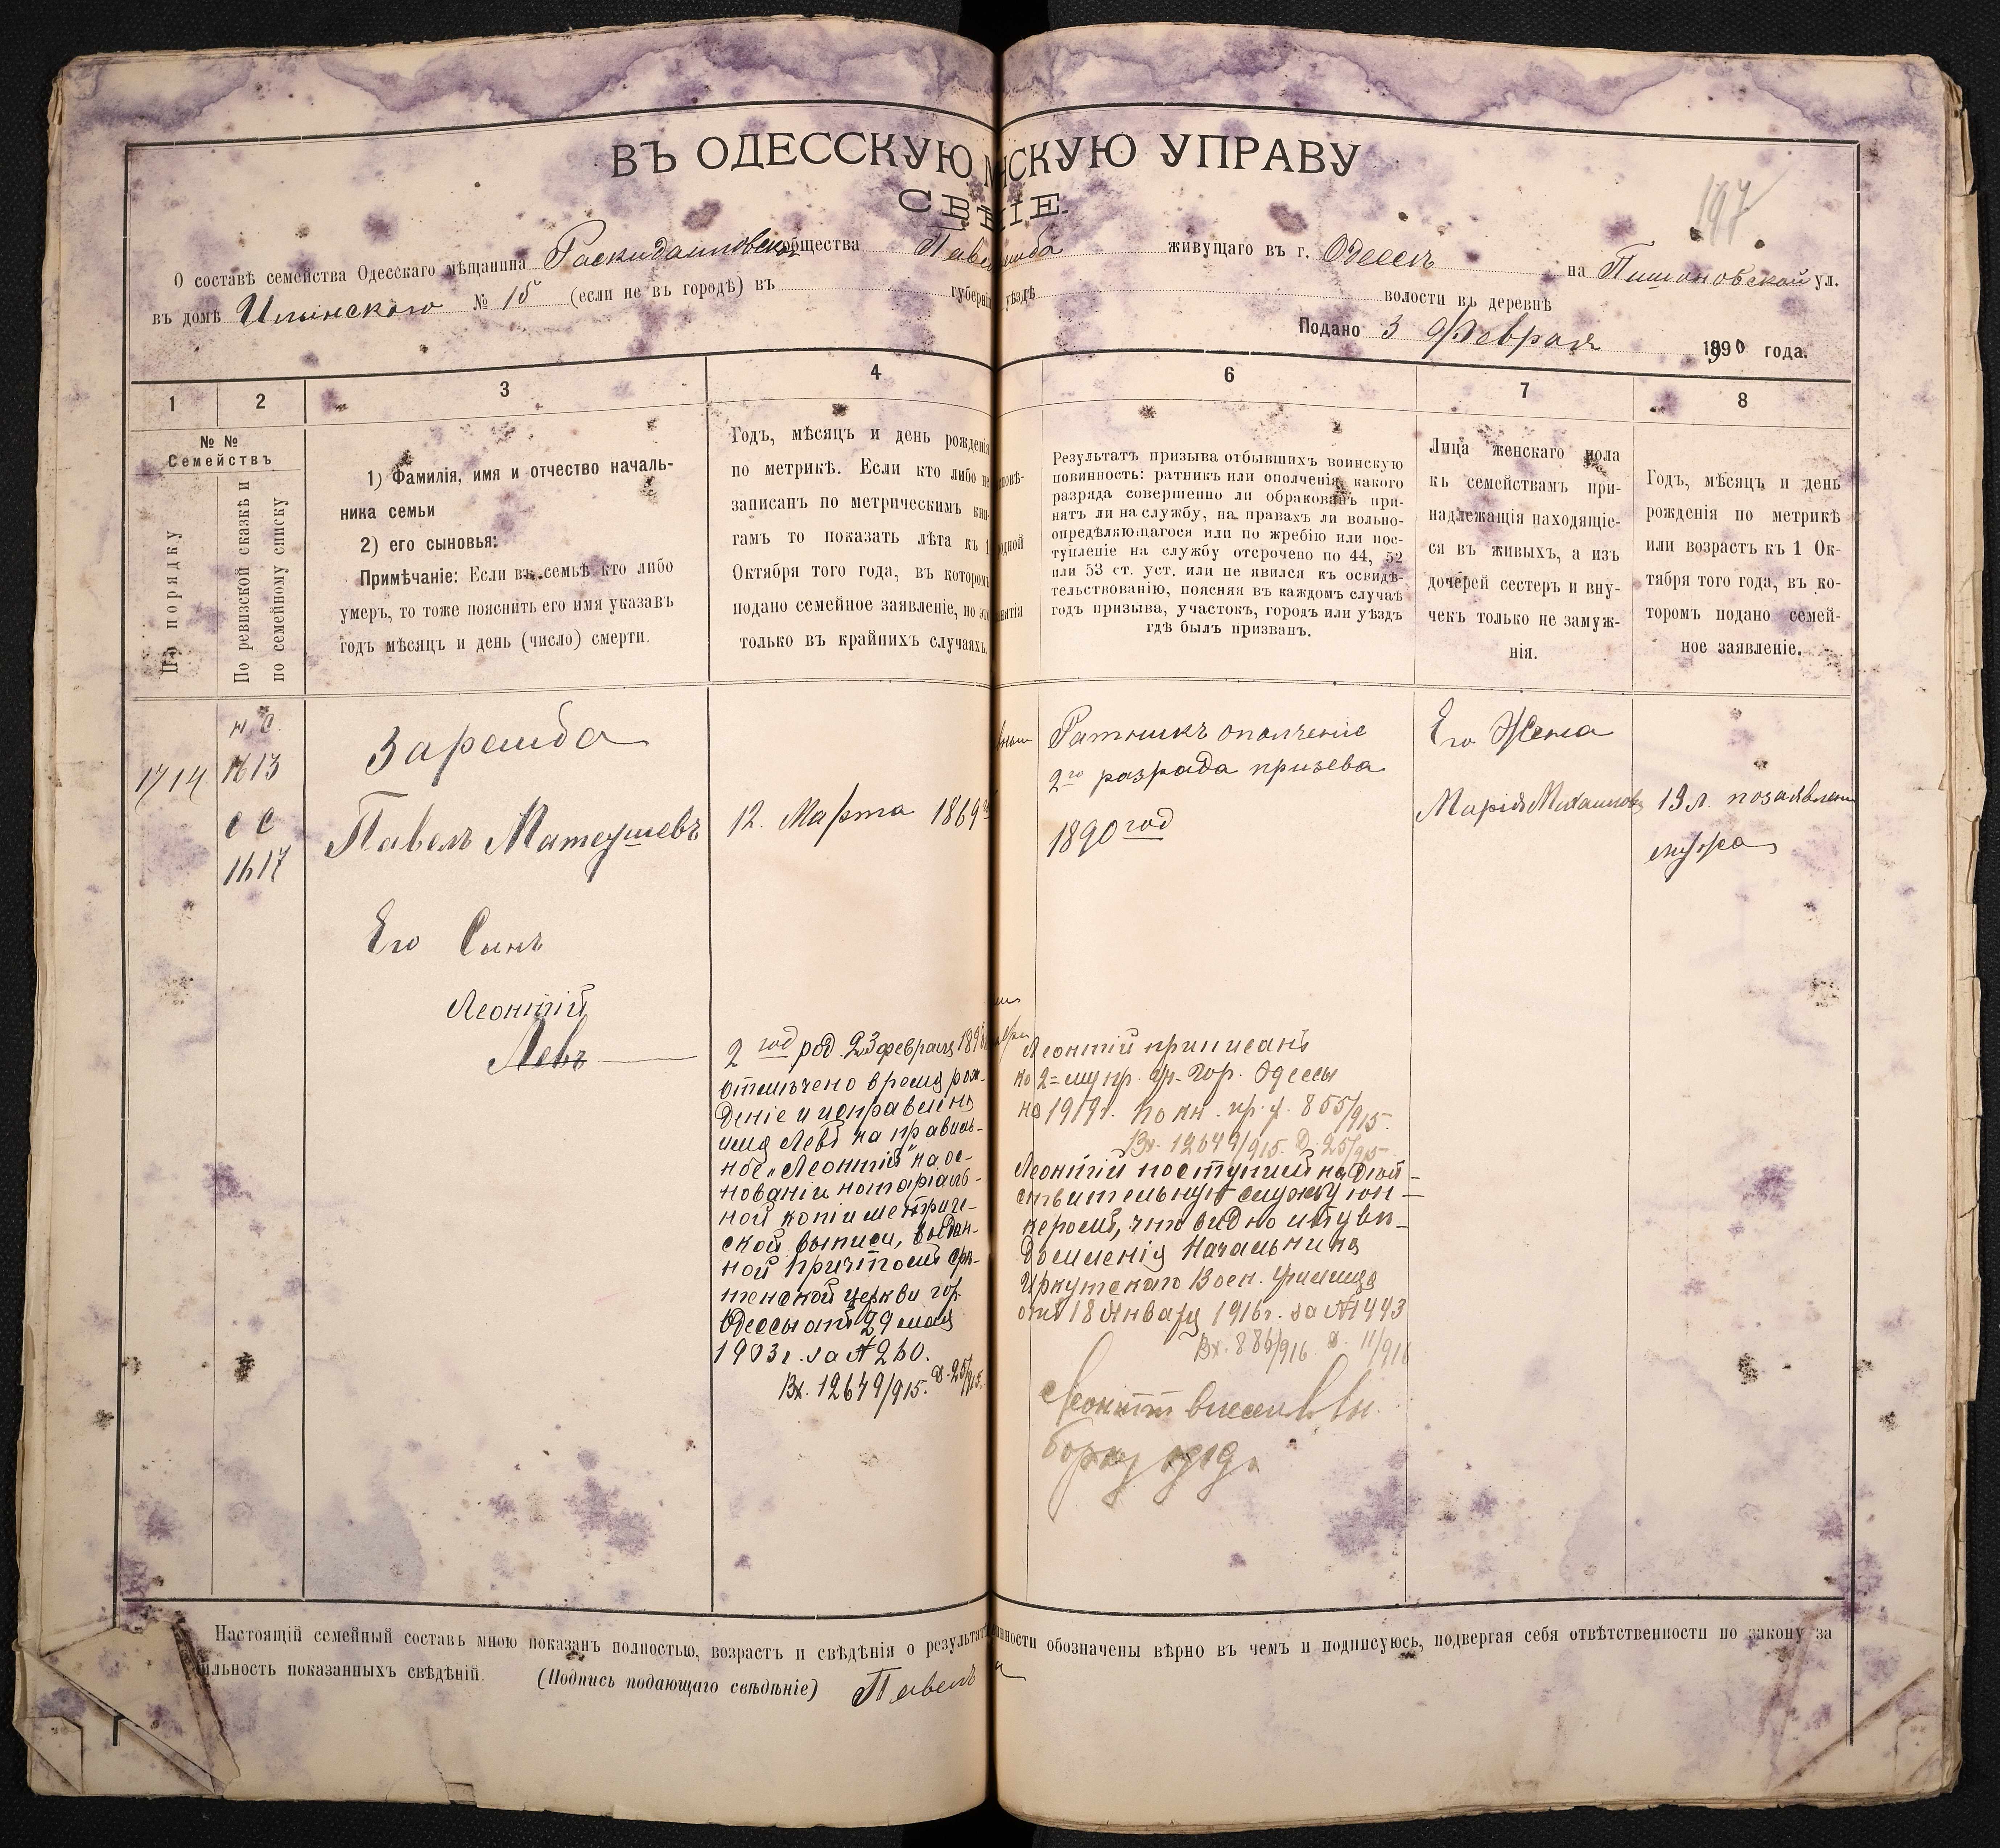 ВЪ ОДЕССКУЮ НСКУЮ УПРАВУ
СВѢ ІЕ
197
О составѣ семейства Одесскаго мѣщанина Раскидаиловск общества Павел живущаго въ г. Одессѣ на Пишоновской ул.
въ домѣ Ильинскаго № 15 (если не въ городѣ) въ губерніи уѣздѣ волости въ деревнѣ
Подано 3 Февраля 1890 года.
1 2 3 4 6 7 8
№ № Семействъ
По порядку
По ревизской сказкѣ и
по семейному списку
1) Фамилія, имя и отчество началь-
ника семьи
2) его сыновья:
Примѣчаніе: Если въ семьѣ кто либо
умеръ, то тоже пояснить его имя указавъ
годъ мѣсяцъ и день (число) смерти.
Годъ, мѣсяцъ и день рожденія
по метрикѣ. Если кто либо не
записанъ по метрическимъ кни-
гамъ то показать лѣта къ 1
Октября того года, въ которомъ
подано семейное заявленіе, но это
только въ крайнихъ случаяхъ.
Результатъ призыва отбывшихъ воинскую
повинность: ратникъ или ополченія, какого
разряда совершенно ли обракованъ при-
нятъ ли на службу, на правахъ ли вольно-
опредѣляющагося или по жребію или пос-
тупленіе на службу отсрочено по 44, 52
или 53 ст. уст. или не явился къ освидѣ-
тельствованію, поясняя въ каждомъ случаѣ
годъ призыва, участокъ, городъ или уѣздъ
гдѣ былъ призванъ.
Лица женскаго пола
къ семействамъ при-
надлежащія находящіе-
ся въ живыхъ, а изъ
дочерей сестеръ и вну-
чекъ только не замуж-
нія.
Годъ, мѣсяцъ и день
рожденія по метрикѣ
или возрастъ къ 1 Ок-
тября того года, въ ко-
торомъ подано семей-
ное заявленіе.
1714
н с
1613
с с
1617
Заремба
Павелъ Матеушевъ
12. Марта 1869
Ратникъ ополченіе
2го разряда призева
1890 год
Его Жена
Марія Михаилова
19 л. по заявлен
мужа
Его Сынъ
Леонтій
Левъ
2 год род. 23 февраля 1898
отмѣчено время рож-
деніе и исправлено
имя Левъ на правиль-
ное „Леонтій" на ос-
нованіи нотаріаль-
ной копіи метриче-
ской выписи, выдан-
ной причтомъ Срѣ-
тенской церкви гор.
Одессы отъ 29 мая
1903г. за № 260.
Вх. 12649/915. Д. 25/915.
Леонтій приписанъ
ко 2=му пр. уч. Гор. Одессы
на 1919г. по кн. пр. у. 855/915.
Вх. 12649/915. Д. 25/915.
Леонтій поступилъ на дѣй-
ствительную службу юн-
керомъ, что видно изъ увѣ-
домленія Начальника
Иркутскаго Воен. училища
отъ 18 Января 1916г. за № 1443
Вх. 886/916 д. 11/916
Леонтій внесен
1919г.
Настоящій семейный составъ мною показанъ полностью, возрастъ и свѣдѣнія о результат инности обозначены вѣрно въ чемъ и подписуюсь, подвергая себя отвѣтственности по закону за
ильность показанныхъ свѣдѣній. (Подпись подающаго свѣдѣніе) Павелъ